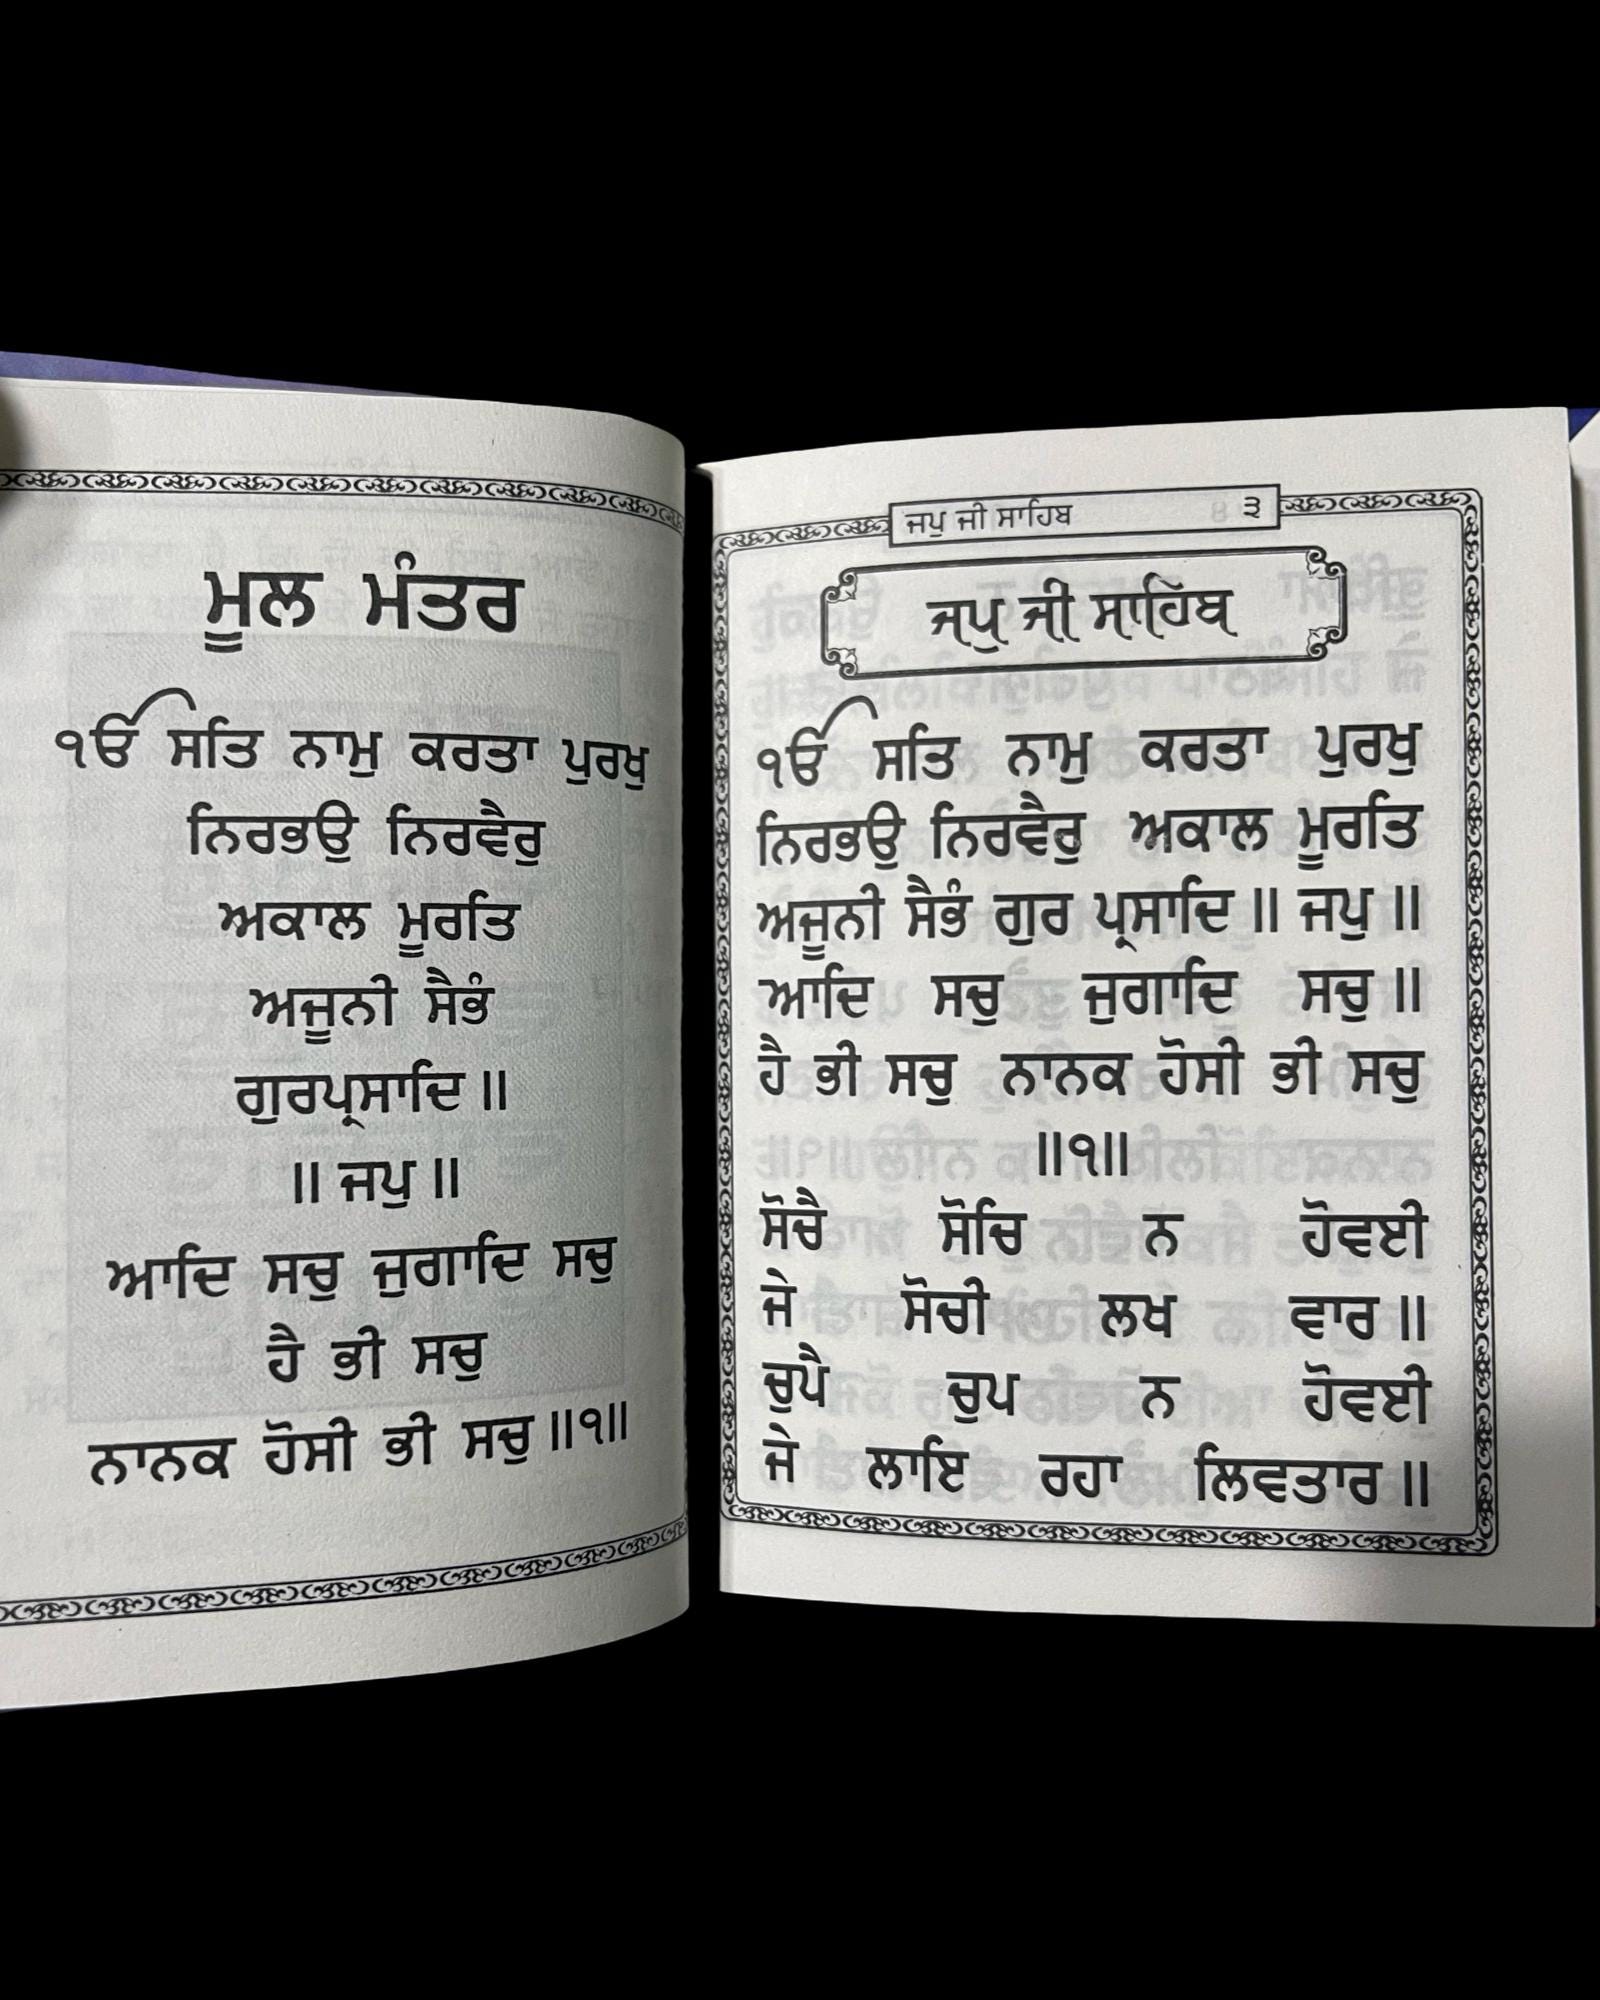 ਮੂਲ ਮੰਤਰ
ੴ ਸਤਿ ਨਾਮੁ ਕਰਤਾ ਪੁਰਖੁ
ਨਿਰਭਉ ਨਿਰਵੈਰੁ
ਅਕਾਲ ਮੂਰਤਿ
ਅਜੂਨੀ ਸੈਭੰ
ਗੁਰਪ੍ਰਸਾਦਿ ॥
॥ ਜਪੁ ॥
ਆਦਿ ਸਚੁ ਜੁਗਾਦਿ ਸਚੁ
ਹੈ ਭੀ ਸਚੁ
ਨਾਨਕ ਹੋਸੀ ਭੀ ਸਚੁ ॥੧॥
ਜਪੁ ਜੀ ਸਾਹਿਬ ੩
ਜਪੁ ਜੀ ਸਾਹਿਬ
ੴ ਸਤਿ ਨਾਮੁ ਕਰਤਾ ਪੁਰਖੁ
ਨਿਰਭਉ ਨਿਰਵੈਰੁ ਅਕਾਲ ਮੂਰਤਿ
ਅਜੂਨੀ ਸੈਭੰ ਗੁਰ ਪ੍ਰਸਾਦਿ ॥ ਜਪੁ ॥
ਆਦਿ ਸਚੁ ਜੁਗਾਦਿ ਸਚੁ ॥
ਹੈ ਭੀ ਸਚੁ ਨਾਨਕ ਹੋਸੀ ਭੀ ਸਚੁ
॥੧॥
ਸੋਚੈ ਸੋਚਿ ਨ ਹੋਵਈ
ਜੇ ਸੋਚੀ ਲਖ ਵਾਰ ॥
ਚੁਪੈ ਚੁਪ ਨ ਹੋਵਈ
ਜੇ ਲਾਇ ਰਹਾ ਲਿਵਤਾਰ ॥